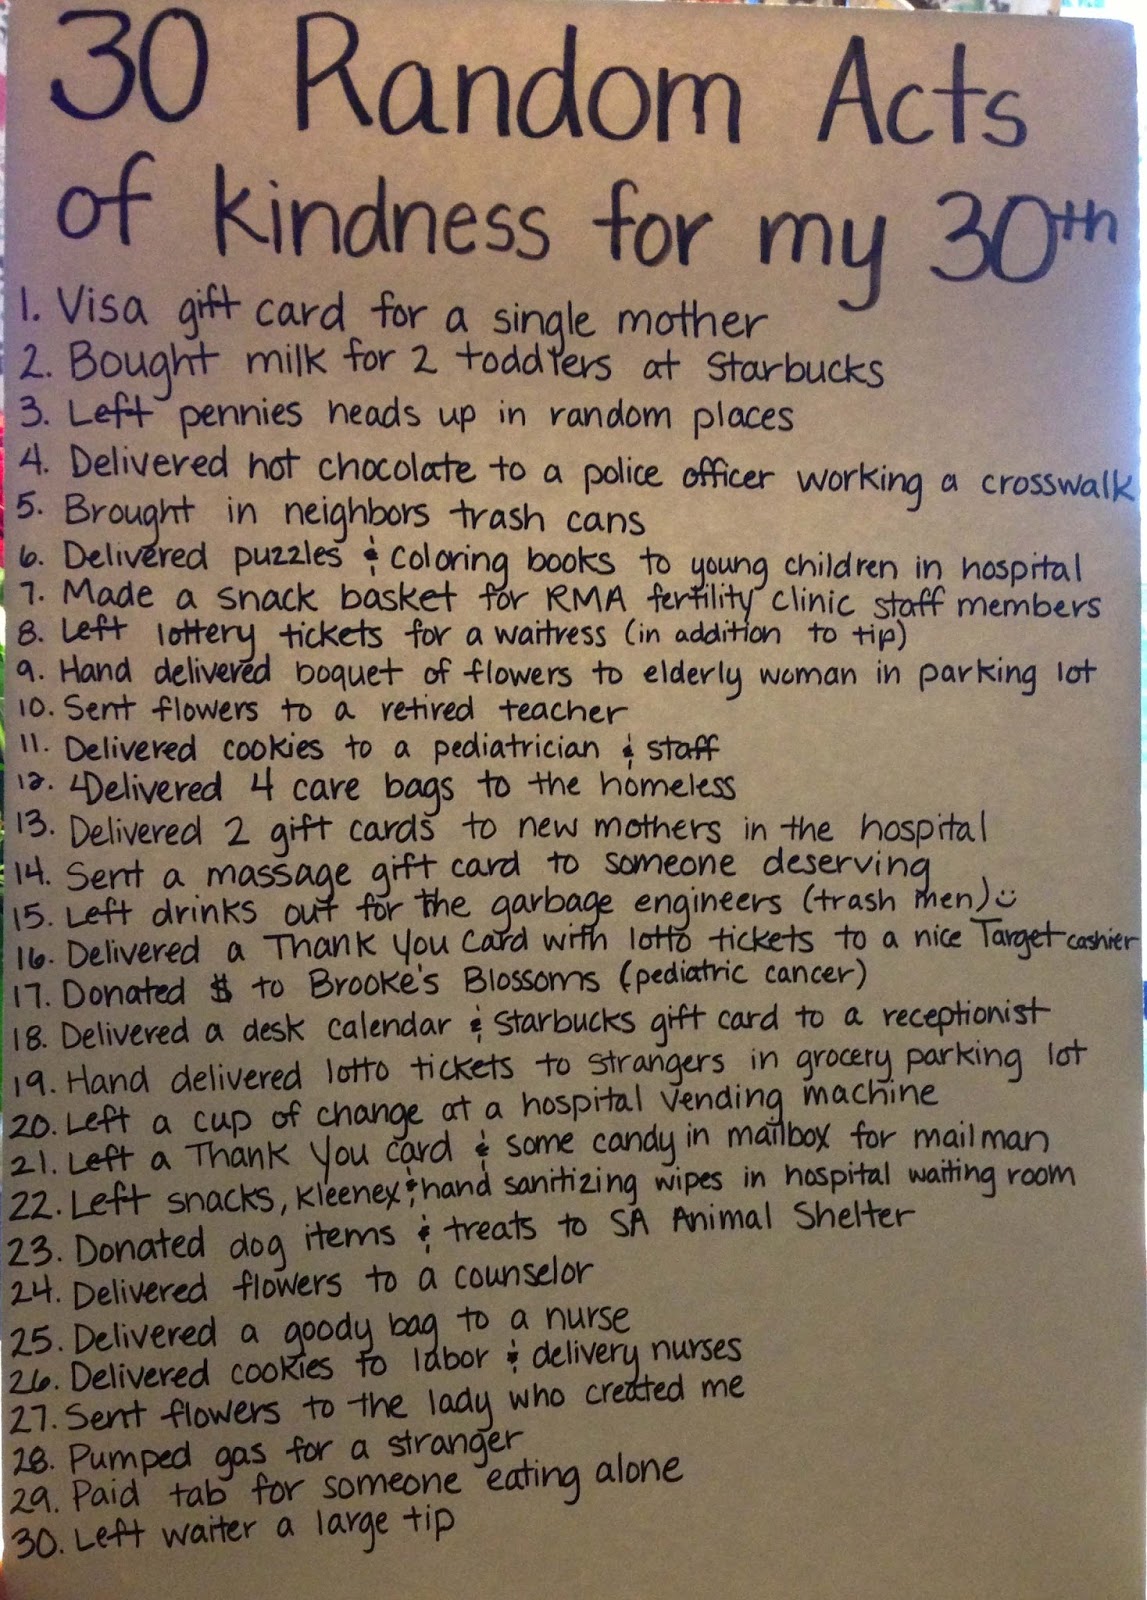 30 Random Acts
of kindness for my 30th
1. Visa gift card for a single mother
2. Bought milk for 2 toddlers at Starbucks
3. Left pennies heads up in random places
4. Delivered hot chocolate to a police officer working a crosswalk
5. Brought in neighbors trash cans
6. Delivered puzzles & coloring books to young children in hospital
7. Made a snack basket for RMA fertility clinic staff members
8. Left lottery tickets for a waitress (in addition to tip)
9. Hand delivered boquet of flowers to elderly woman in parking lot
10. Sent flowers to a retired teacher
11. Delivered cookies to a pediatrician & staff
12. Delivered 4 care bags to the homeless
13. Delivered 2 gift cards to new mothers in the hospital
14. Sent a massage gift card to someone deserving
15. Left drinks out for the garbage engineers (trash men) :)
16. Delivered a Thank You Card with lotto tickets to a nice Target cashier
17. Donated $ to Brooke's Blossoms (pediatric cancer)
18. Delivered a desk calendar & Starbucks gift card to a receptionist
19. Hand delivered lotto tickets to strangers in grocery parking lot
20. Left a cup of change at a hospital vending machine
21. Left a Thank You card & some candy in mailbox for mailman
22. Left snacks, Kleenex & hand sanitizing wipes in hospital waiting room
23. Donated dog items & treats to SA Animal Shelter
24. Delivered flowers to a counselor
25. Delivered a goody bag to a nurse
26. Delivered cookies to labor & delivery nurses
27. Sent flowers to the lady who created me
28. Pumped gas for a stranger
29. Paid tab for someone eating alone
30. Left waiter a large tip